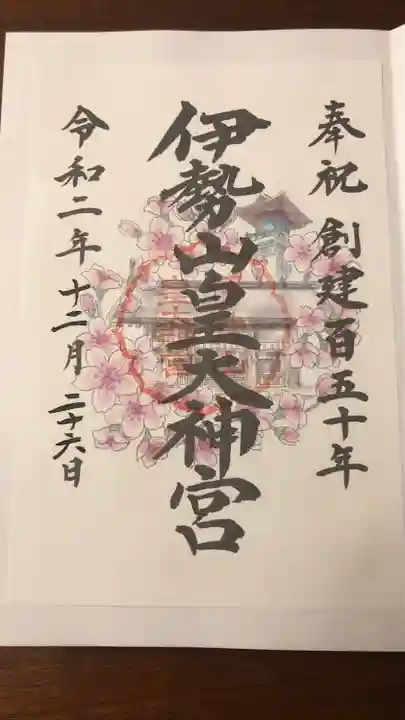 奉祝 創建百五十年
伊勢山皇大神宮
令和二年 十二月 二十六日